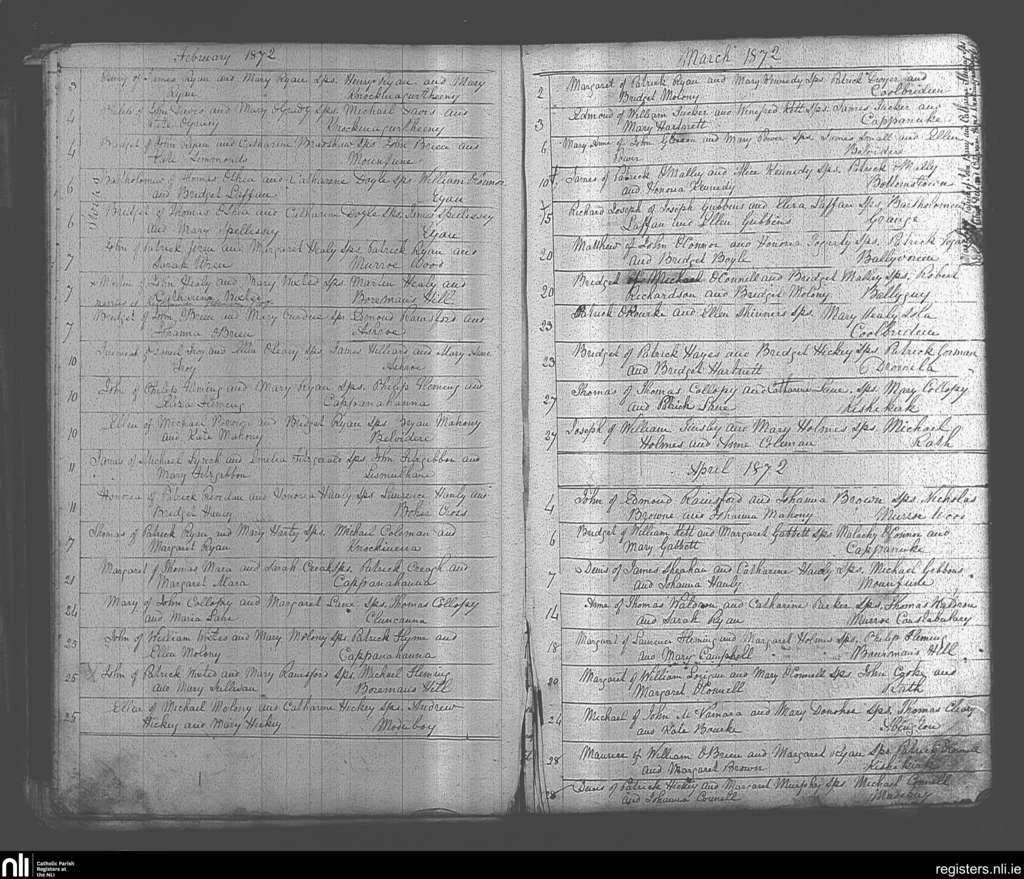 February 1872
3 Henry of James Ryan and Mary Ryan Sps. Henry Ryan and Mary
Ryan Knocknagurtheeny
4 of John Davis and Mary O'Grady Sps. Michael Davis and
Kate Knocknagurtheeny
4 Bridget of John and Catharine Bradshaw Sps John Brien and
Kate Mounfune
6 Bartholomas of Thomas O'Shea and Catharine Doyle Sps William O'Connor
and Bridget Laffan Eyon
6 Bridget of Thomas O'Shea and Catharine Doyle Sps. James Spellessy
and Mary Spellessy Eyon
7 John of Patrick and Margaret Healy Sps. Patrick Ryan and
Sarah Murroe Woos
7 of John Healy and Mary Sps. Martin Healy and
Catharine Boremans Hill
7 Bridget of John O'Brien and Mary Sps Edmond and
Johanna O'Brien Ashroe
10 of Edmond Troy and Ellen Cleary Sps. James Hilliard and Mary Anne
Troy Ashroe
10 John of Philip Fleming and Mary Ryan Sps. Philip Fleming and
Eliza Fleming Cappanahanna
10 Ellen of Michael and Bridget Ryan Sps Bryan Mahony
and Kate Mahony Belvidere
11 James of Michael Lynch and Amelia Fitzgerald Sps John Fitzgibbon and
Mary Fitzgibbon Lismullane
11 Honoria of Patrick Riordan and Honoria Hanly Sps Laurence Hanly and
Bridget Hanly Boher Cross
7 Thomas of Patrick Ryan and Mary Harty Sps. Michael Coleman and
Margaret Ryan
21 Margaret of Thomas Mara and Sarah Creagh Sps. Patrick Creagh and
Margaret Mara Cappanahanna
24 Mary of John Collopy and Margaret Lane Sps. Thomas Collopy
and Maria Lane Cluncunna
25 John of William and Mary Molony Sps Patrick Flynn and
Ellen Molony Cappanahanna
25 John of Patrick and Mary Ransford Sps. Michael Fleming
and Mary Sullivan Boremans Hill
25 Ellen of Michael Molony and Catharine Hickey Sps. Andrew
Hickey and Mary Hickey Modeboy
March 1872
2 Margaret of Patrick Ryan and Mary Kennedy Sps. Patrick Dwyer and
Bridget Molony Coolbrideen
3 Edmond of William Tucker and Winifred Kett Sps. James Tucker and
Mary Hartnett Cappanuke
6 Mary Anne of John Gleeson and Mary Power Sps. James Small and Ellen
Power Belvidere
10 James of Patrick O'Malley and Alice Kennedy Sps. Patrick O'Mally
and Honora Kennedy Bottomstown
15 Richard Joseph of Joseph Gubbins and Eliza Laffan Sps. Bartholomew
Laffan and Ellen Gubbins Grange
20 Matthew of John O'Connor and Honoria Fogerty Sps. Patrick
and Bridget Boyle Ballyvoreen
20 Bridget of Michael O'Connell and Bridget Malley Sps. Robert
Richardson and Bridget Molony Ballyguy
23 Patrick O'Rourke and Ellen Skinners Sps. Mary Healy
Coolbrideen
23 Bridget of Patrick Hayes and Bridget Hickey Sps. Patrick Gorman
and Bridget Hartnett Dromeila
27 Thomas of Thomas Collopy and Catharine Lane. Sps. Mary Collopy
and Patrick Lane Kishikirk
27 Joseph of William Tinsley and Mary Holmes Sps. Michael
Holmes and Anne Coleman Rath
April 1872
4 John of Edmond Ransford and Johanna Browne Sps. Nicholas
Browne and Johanna Mahony Murroe Woos
6 Bridget of William Kett and Margaret Gabbett Sps Malachy O'Connor and
Mary Gabbett Cappanuke
7 Denis of James Speahan and Catharine Hanly Sps. Michael Gibbons
and Johanna Hanly Mounfune
14 Anne of Thomas Waldron and Catharine Parker Sps. Thomas Waldron
and Sarah Ryan Murroe Constabulary
18 Margaret of Laurence Fleming and Margaret Holmes Sps. Philip Fleming
and Mary Campbell Bauromans Hill
20 Margaret of William Lonigan and Mary O'Connell Sps. John Cooke and
Margaret O'Connell Rath
24 Michael of John McNamara and Mary Donohoe Sps. Thomas Cleary
and Kate Bourke Abington
28 Maurice of William O'Brien and Margaret Ryan Sps. Patrick O'Connell
and Margaret Brown Kishikirk
28 Denis of Patrick Hickey and Margaret Murphy Sps. Michael Connell
and Johanna Connell Modeboy
nli Catholic Parish
Registers at
the NLI
registers.nli.ie